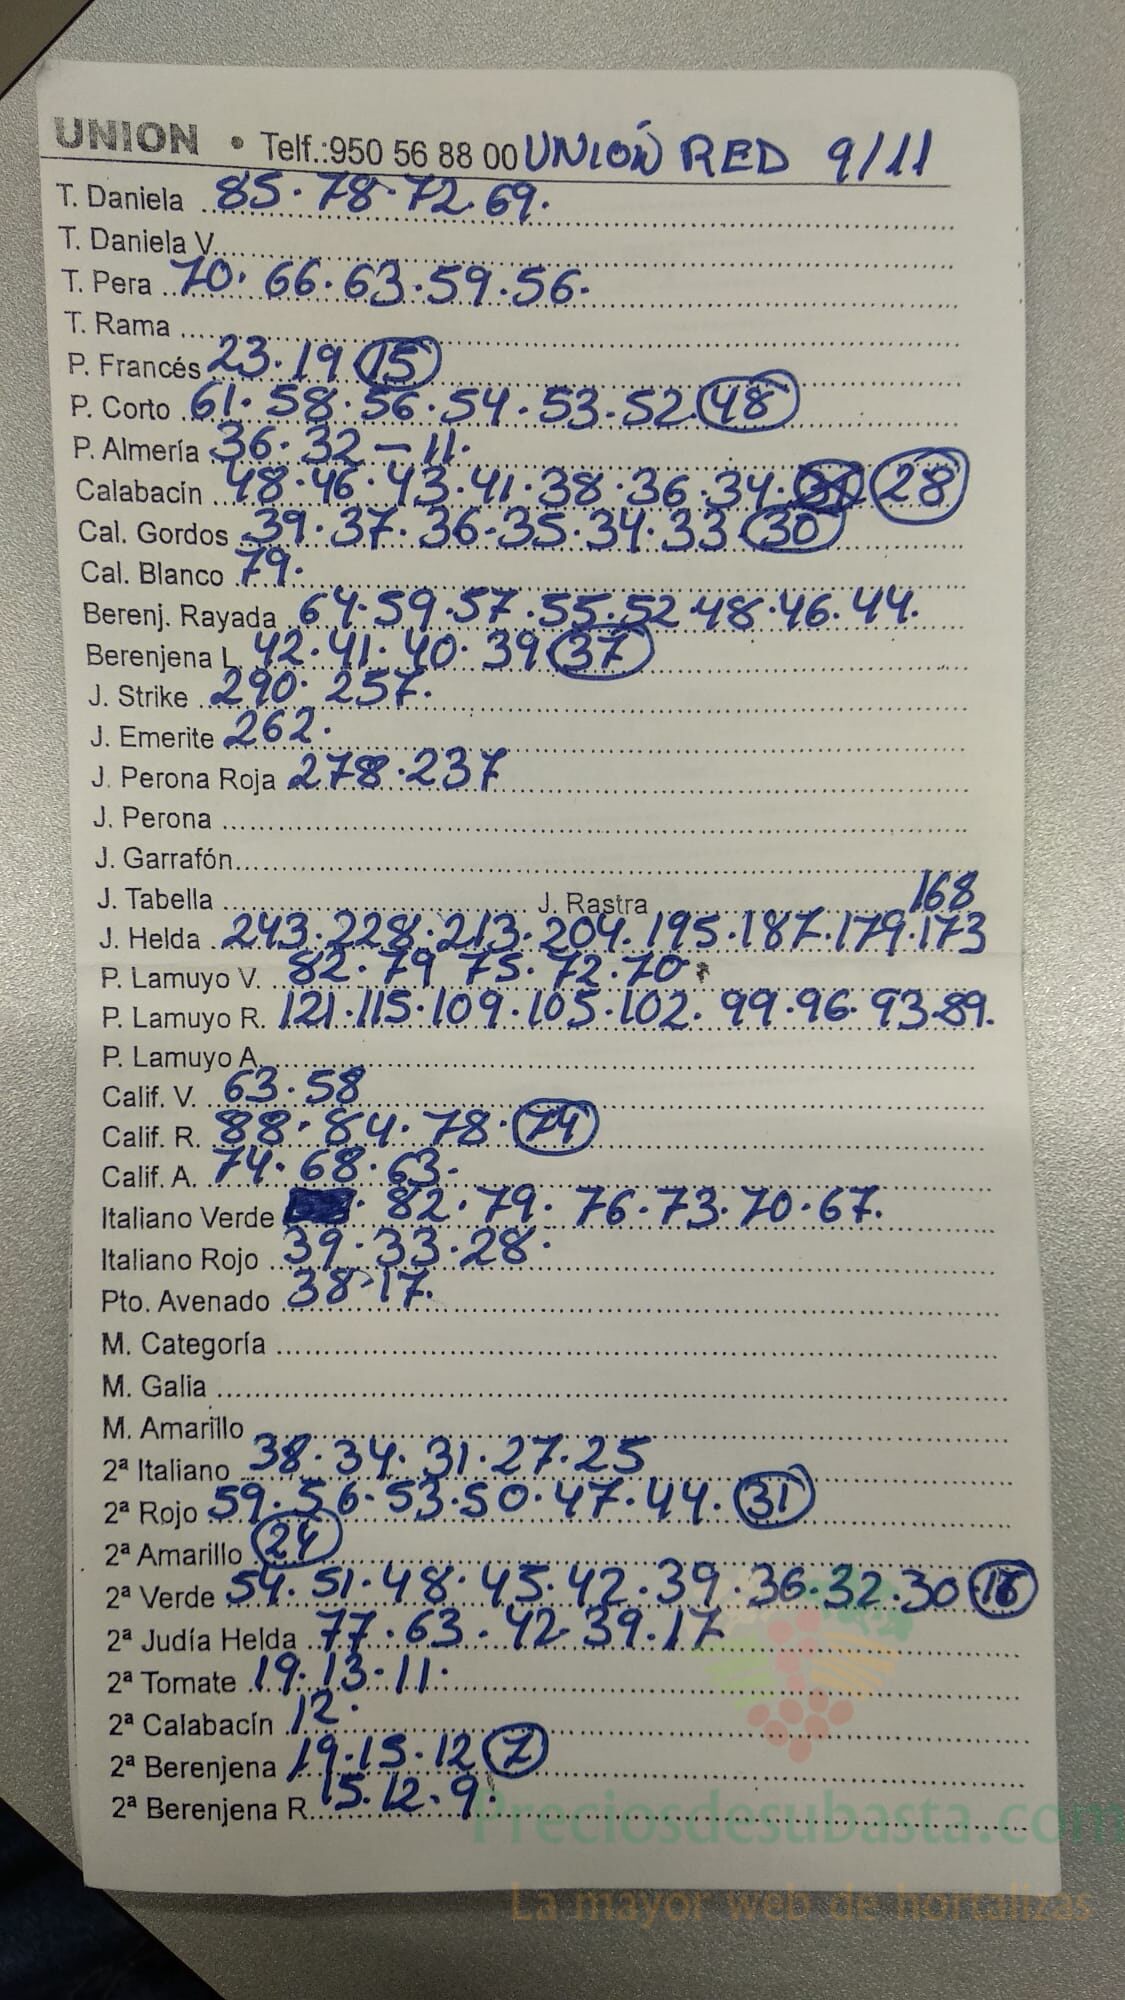 UNION • Telf.:950 56 88 00 UNIÓN RED 9/11
T. Daniela 85·78·72·69·
T. Daniela V.
T. Pera 70·66·63·59·56·
T. Rama
P. Francés 23·19 15
P. Corto 61·58·56·54·53·52 48
P. Almería 36·32–11·
Calabacín 48·46·43·41·38·36·34· 28
Cal. Gordos 39·37·36·35·34·33 30
Cal. Blanco 79·
Berenj. Rayada 64·59·57·55·52·48·46·44·
Berenjena L. 42·41·40·39 37
J. Strike 290·257·
J. Emerite 262·
J. Perona Roja 278·237
J. Perona
J. Garrafón
J. Tabella J. Rastra 168
J. Helda 243·228·213·204·195·187·179·173
P. Lamuyo V. 82·79 75·72·70
P. Lamuyo R. 121·115·109·105·102·99·96·93·89·
P. Lamuyo A.
Calif. V. 63·58
Calif. R. 88·84·78· 74
Calif. A. 74·68·63·
Italiano Verde · 82·79·76·73·70·67·
Italiano Rojo 39·33·28·
Pto. Avenado 38·17·
M. Categoría
M. Galia
M. Amarillo
2ª Italiano 38·34·31·27·25
2ª Rojo 59·56·53·50·47·44· 31
2ª Amarillo 24
2ª Verde 54·51·48·45·42·39·36·32·30
2ª Judía Helda 77·63·42·39·17
2ª Tomate 19·13·11·
2ª Calabacín 12·
2ª Berenjena 19·15·12 7
2ª Berenjena R. 15·12·9·
Preciosdesubasta.com
La mayor web de hortalizas